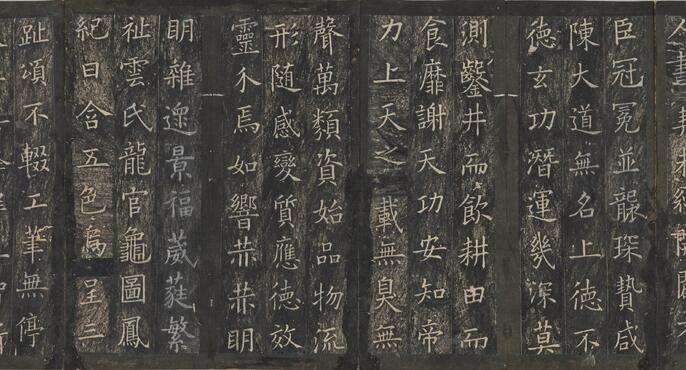 臣冠冕並襲琛贄咸
陳大道無名上徳不
徳玄功潛運㡬深莫
測鑿井而飲耕田而
食靡謝天功安知帝
力上天之載無臭無
聲萬類資始品物流
形随感變質應徳效
靈不焉如響恭恭明
明雜遝景福葳蕤繁
祉雲氏龍官龜圖鳳
紀日含五色烏呈三
趾頌不輟工筆無停